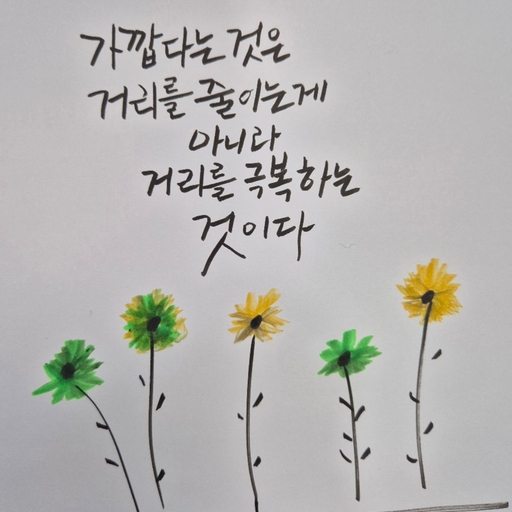 가깝다는 것은
거리를 줄이는게
아니라
거리를 극복하는
것이다